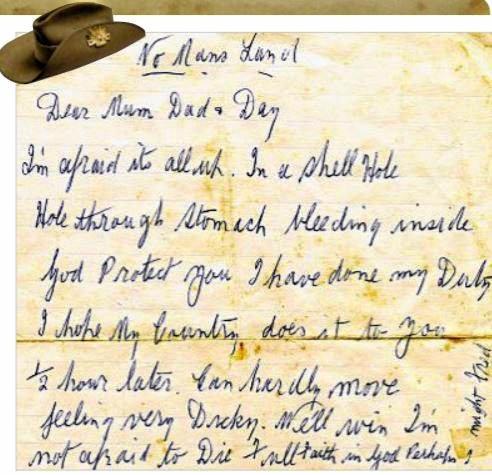 No Mans Land
Dear Mum Dad & Day
I'm afraid its all up. In a shell Hole
Hole through Stomach bleeding inside
God Protect you I have done my Duty
I hope My Country does it to you
1/2 hour later. Can hardly move
feeling very Dicky. We'll win I'm
not afraid to Die Full Faith in God Perhaps I
might